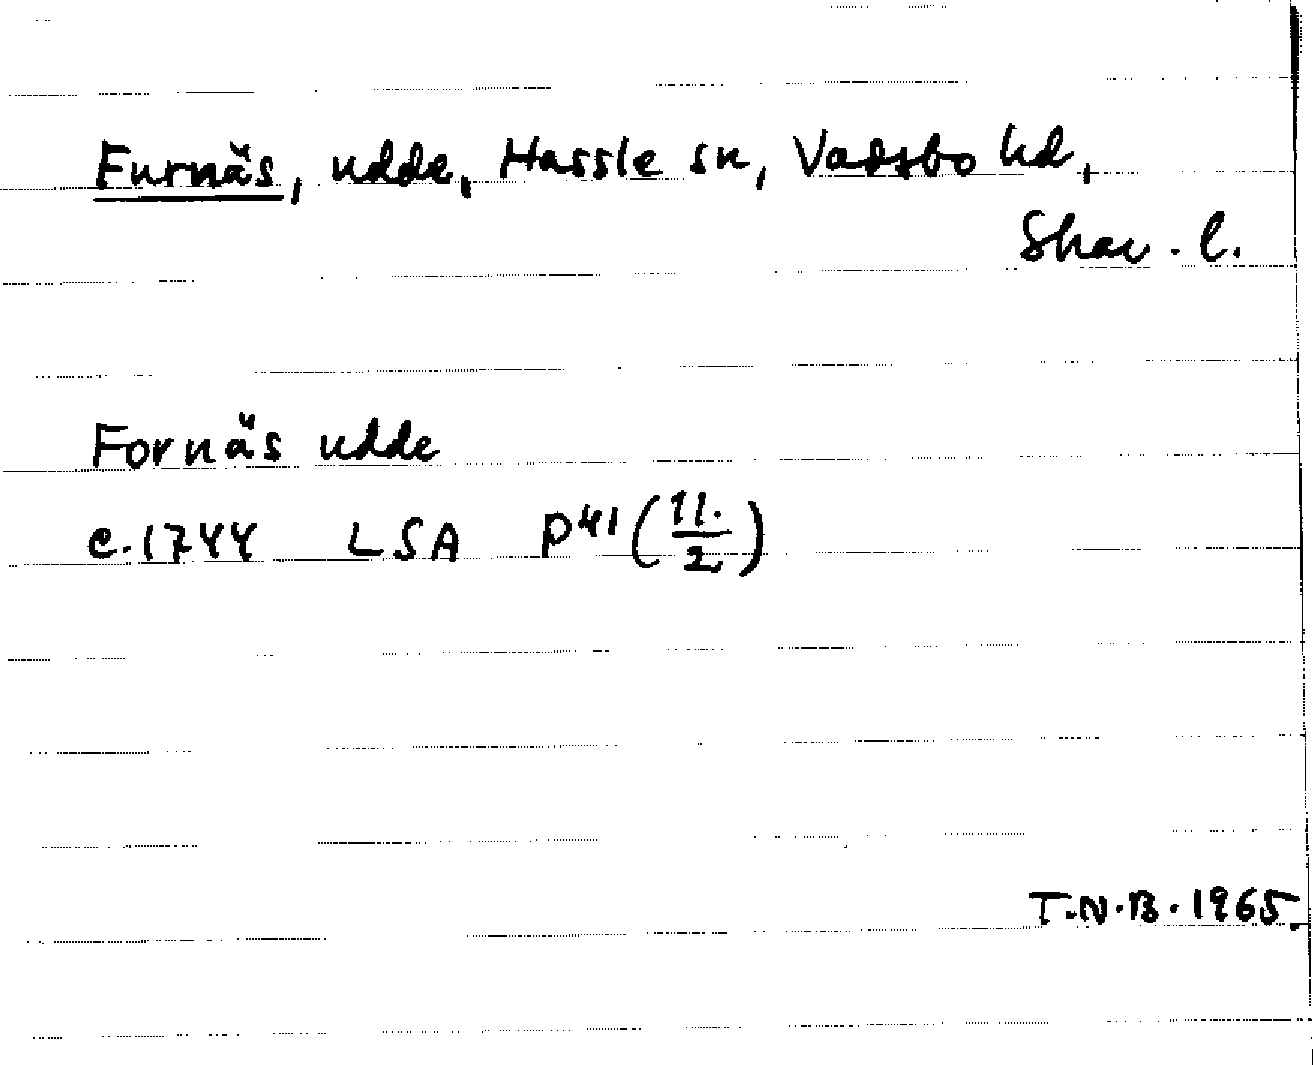 Furnäs, udde, Hassle sn, Vadsbo hd,
Skar. l.
Fornäs udde
c. 1744 LSA P41 (11./2)
T.N.B. 1965.